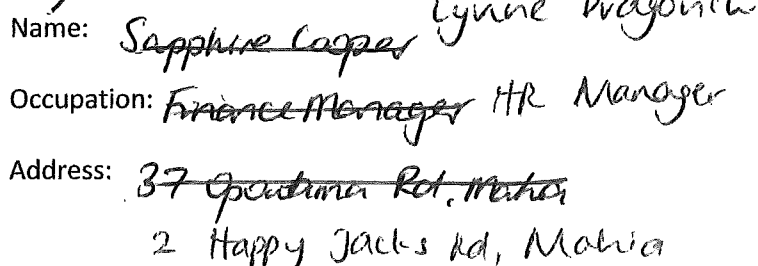 Name: Sapphire Cooper Lynne
Occupation: Finance Manager HR Manager
Address: 37 Opoutama Rd, Mahia
2 Happy Jacks Rd, Mahia